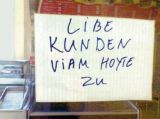 LIBE
KUNDEN
VIAM HOYTE
ZU